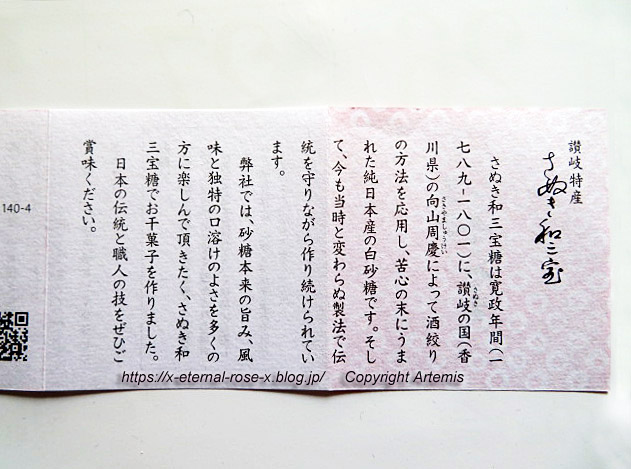 讃岐特産
さぬき和三宝
さぬき和三宝糖は寛政年間(一
七八九-一八〇一)に、讃岐の国(香
さぬき
川県)の向山周慶によって酒絞り
さきやましゅうけい
の方法を応用し、苦心の末にうま
れた純日本産の白砂糖です。そし
て、今も当時と変わらぬ製法で伝
統を守りながら作り続けられてい
ます。
弊社では、砂糖本来の旨み、風
味と独特の口溶けのよさを多くの
方に楽しんで頂きたく、さぬき和
三宝糖でお干菓子を作りました。
日本の伝統と職人の技をぜひご
賞味ください。
140-4
https://x-eternal-rose-x.blog.jp/ Copyright Artemis